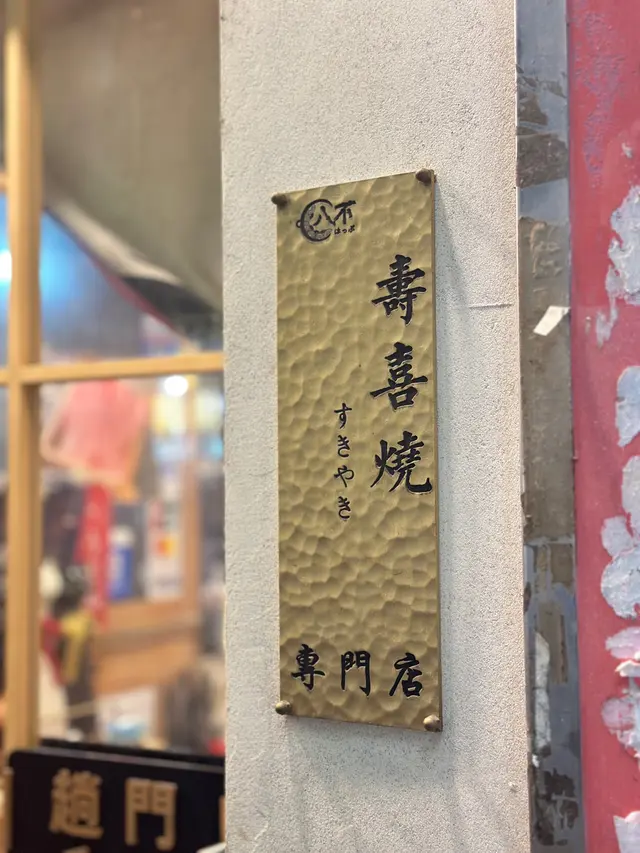 八不
はっぷ
壽喜燒
すきやき
專門店
趙門